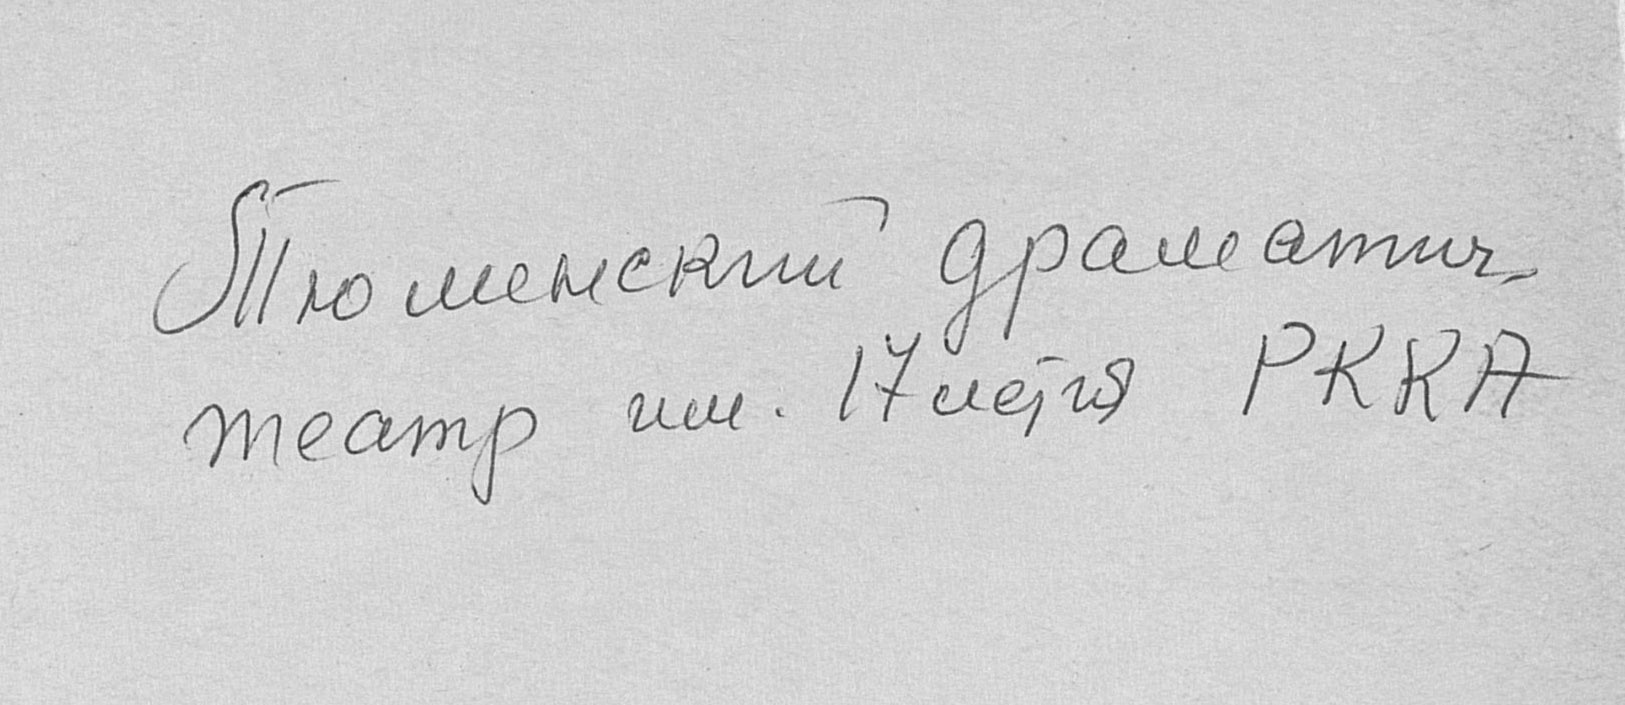 Тюменский драматич.
театр им. 17летия РККА